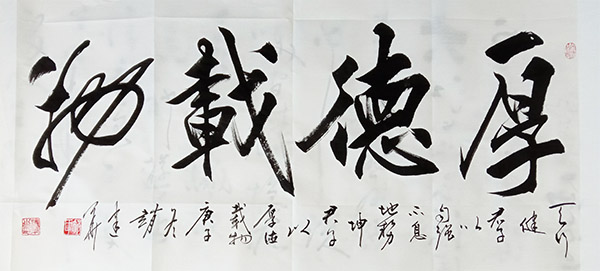 厚德載物
天行健君子以自强不息地势坤君子以厚德載物庚子冬